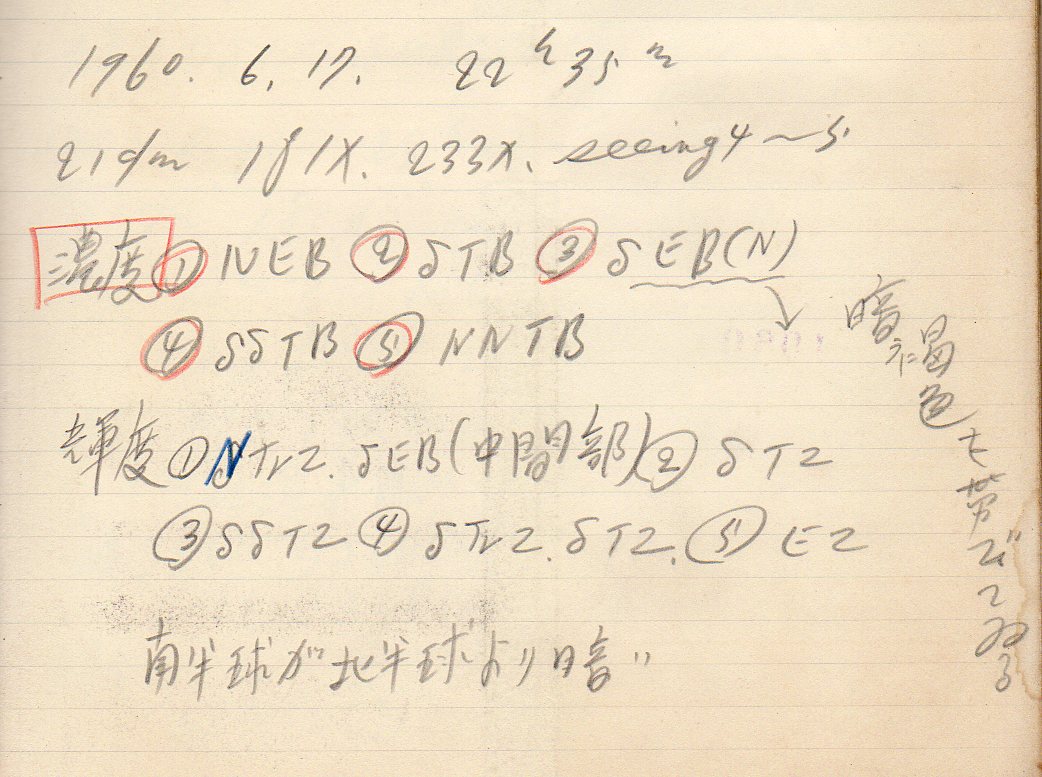 1960. 6. 17. 22h35m
21cm 181X. 233X. seeing 4~5
濃度 ① NEB ② STB ③ SEB(N)
④ SSTB ⑤ NNTB
暗褐色を帯びてゐる
輝度 ① NTrZ. SEB(中間部) ② STZ
③ SSTZ ④ STrZ. STZ. ⑤ EZ
南半球が北半球より暗い